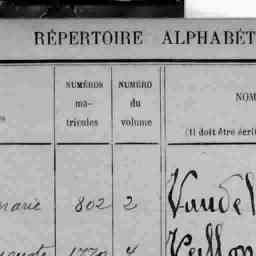 RÉPERTOIRE ALPHABÉT
NUMÉROS
ma-
tricules
NUMÉRO
du
volume
NOM
(Il doit être écri
marie 802 2 Vaudel
1770 4